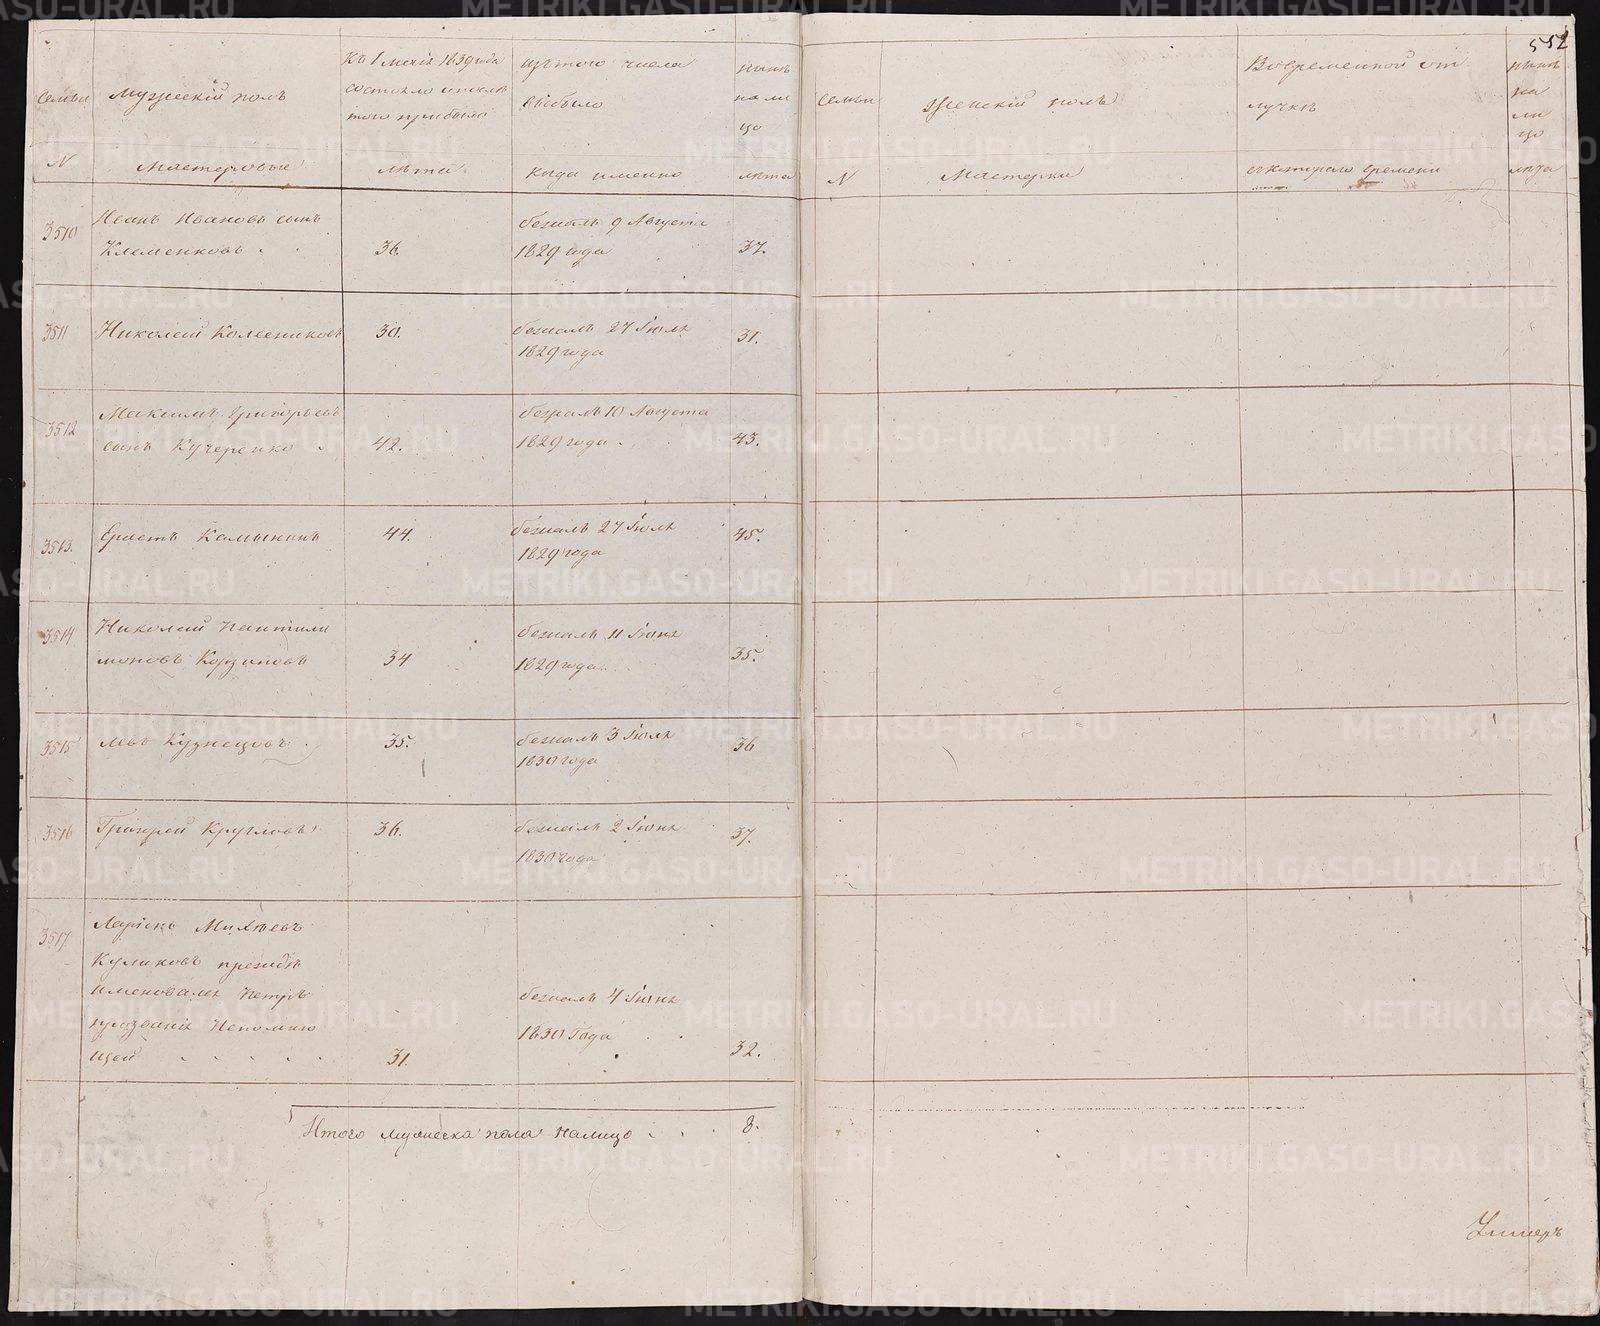 552
Семьи
Мужескій полъ
Къ 1 маія 1830 года
состояло и послѣ
того прибыло
изъ того числа
выбыло
нынѣ
на ли
цо
Семьи
Женскій полъ
Во временной от
лучкѣ
нынѣ
на
ли
цо
N
Мастеровые
лѣта
когда именно
лѣта
N
Мастерки
съ котораго времени
лѣта
3510
Иванъ Ивановъ сынъ
Клеменковъ
36.
бежалъ 9 Августа
1829 года
37.
3511
Николай Колесниковъ
30.
бежалъ 27 Іюля
1829 года
31.
3512
Максимъ Григорьевъ
сынъ Кучеренко
42.
бежалъ 10 Августа
1829 года
43.
3513.
Ерастъ Камынинъ
44.
бежалъ 27 Іюля
1829 года
45.
3514
Николай Пантили
моновъ Корзиновъ
34
бежалъ 11 Іюня
1829 года
35.
3515
Левъ Кузнецовъ
35.
бежалъ 3 Іюля
1830 года
36
3516
Григорей Кругловъ
36.
бежалъ 2 Іюня
1830 года
37.
3517
Ларіонъ Михѣевъ
Куликовъ прежде
именовался Петръ
прозванія Непомню
щей . . . . .
31.
бежалъ 4 Іюня
1830 Года
32.
Итого мужеска пола налицо . . .
8.
METRIKI.GASO-URAL.RU